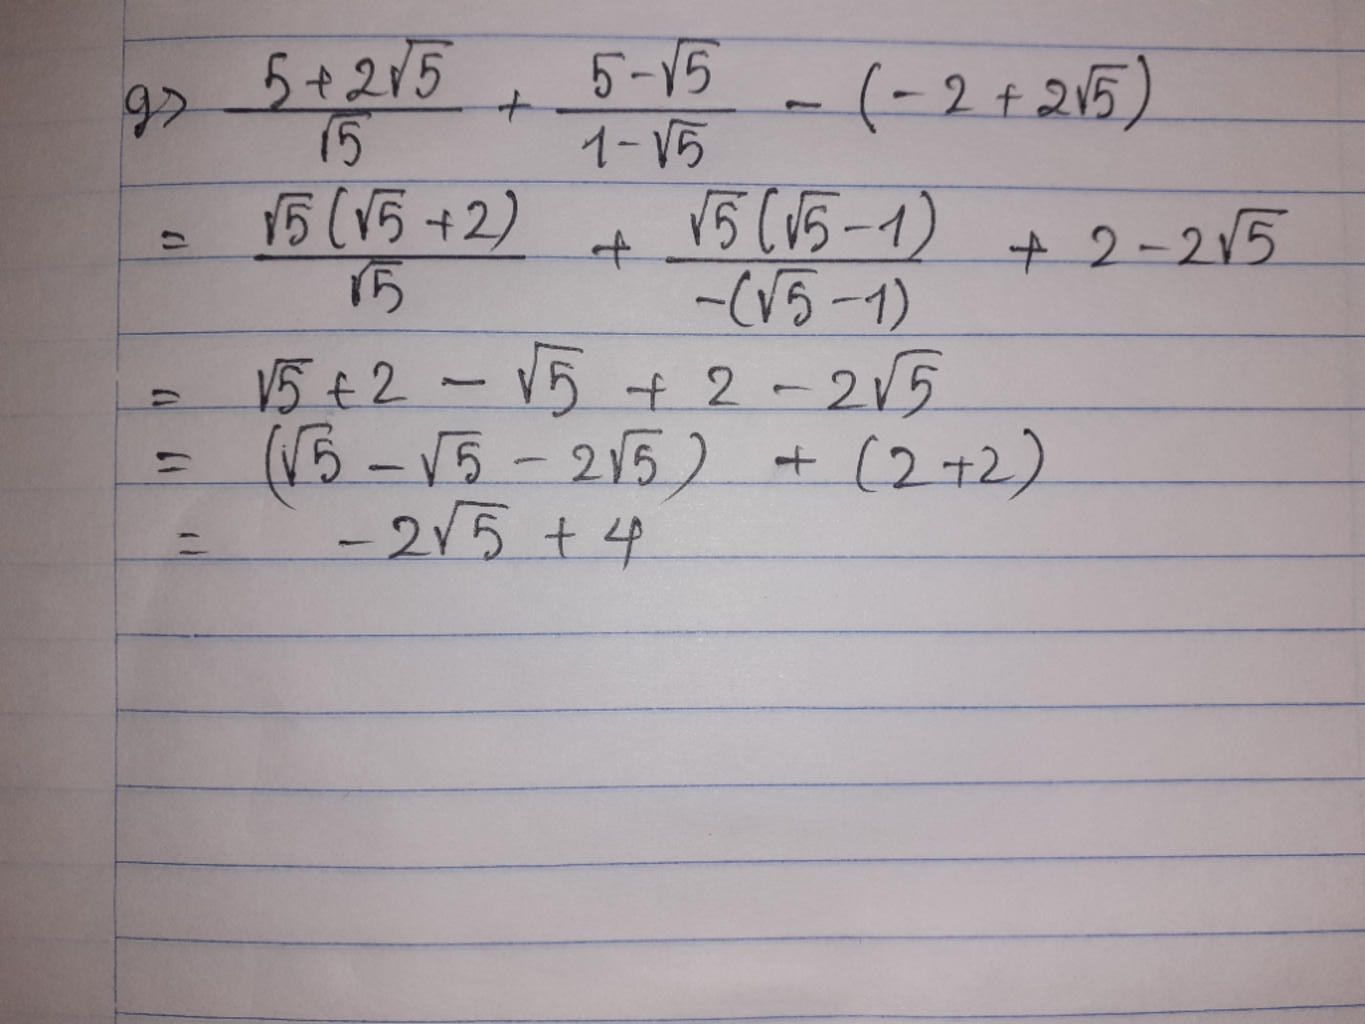 g> (5+2√5)/√5 + (5-√5)/(1-√5) - (-2+2√5)
= √5(√5+2)/√5 + √5(√5-1)/-(√5-1) + 2-2√5
= √5+2 - √5 + 2 - 2√5
= (√5 - √5 - 2√5) + (2+2)
= -2√5 + 4